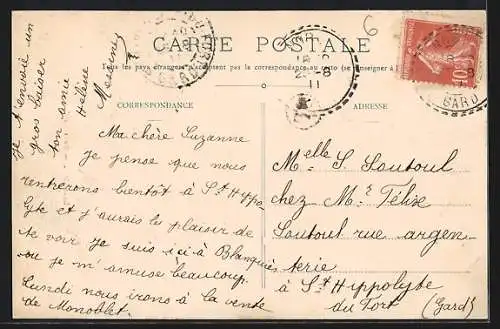 CARTE POSTALE
Tous les pays étrangers n'acceptent pas la correspondance au recto (se renseigner à
CORRESPONDANCE
Ma chère Suzanne
je pense que nous
rentrerons bientôt à St Hyppo-
lyte et j'aurais le plaisir de
te voir je suis ici à Blanquiès
ou je m'amuse beaucoup.
Lundi nous irons à la vente
de Monoblet.
Je t'envoie un
gros baiser
ton amie
Hélène
ADRESSE
Melle S. Soutoul
chez Mr Félix
Soutoul rue argen
terie
à St Hippolyte
du Fort (Gard)
6
10
GARD